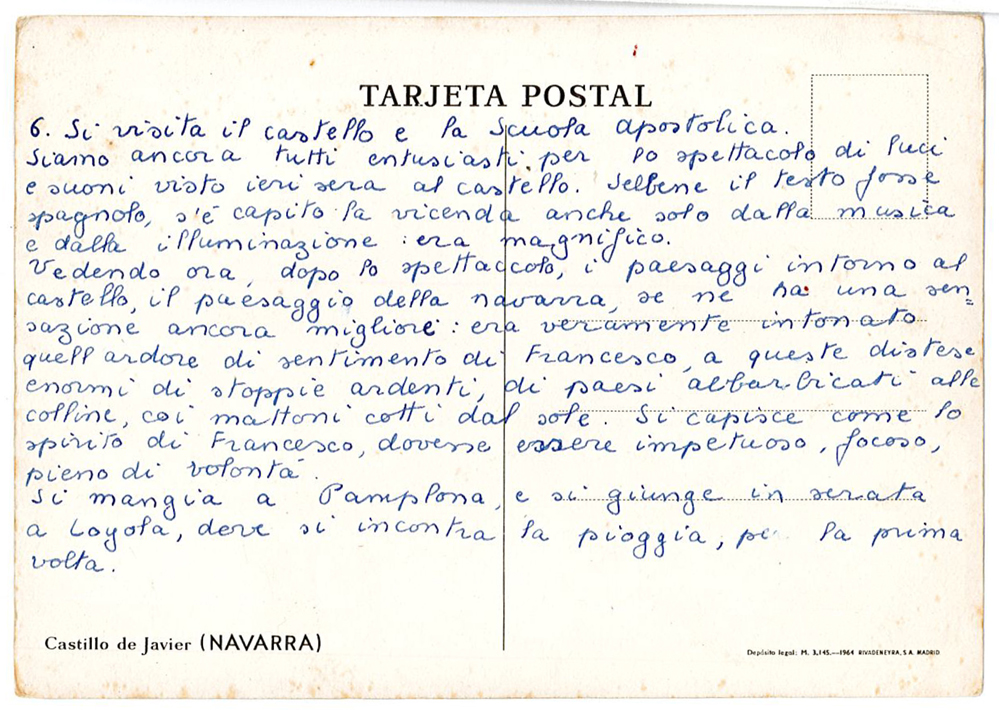 TARJETA POSTAL
6. Si visita il castello e la Scuola apostolica.
Siamo ancora tutti entusiasti per lo spettacolo di luci
e suoni visto ieri sera al castello. Sebbene il testo fosse
spagnolo, s'é capito la vicenda anche solo dalla musica
e dalla illuminazione : era magnifico.
Vedendo ora, dopo lo spettaccolo, i paesaggi intorno al
castello, il paesaggio della navarra, se ne ha una sen=
sazione ancora migliore : era veramente intonato
quell ardore di sentimento di Francesco, a queste distese
enormi di stoppie ardenti, di paesi abbarbicati alle
colline, coi mattoni cotti dal sole. Si capisce come lo
spirito di Francesco, dovesse essere impetuoso, focoso,
pieno di volontá.
Si mangia a Pamplona, e si giunge in serata
a Loyola, dove si incontra la pioggia, per la prima
volta.
Castillo de Javier (NAVARRA)
Depósito legal: M. 3,145.—1964 RIVADENEYRA, S. A. MADRID